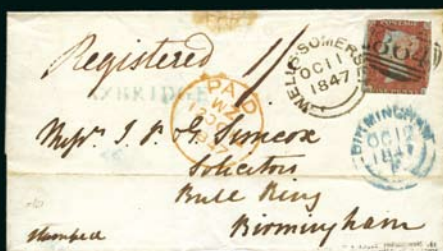 Registered 1/
WELLS SOMERSET
OC 11
1847
864
AXBRIDGE
PAID
1847
BIRMINGHAM
OC 12
1847
Messrs. I. & G. Simcox
Solicitors
Bull Ring
Birmingham
stamped